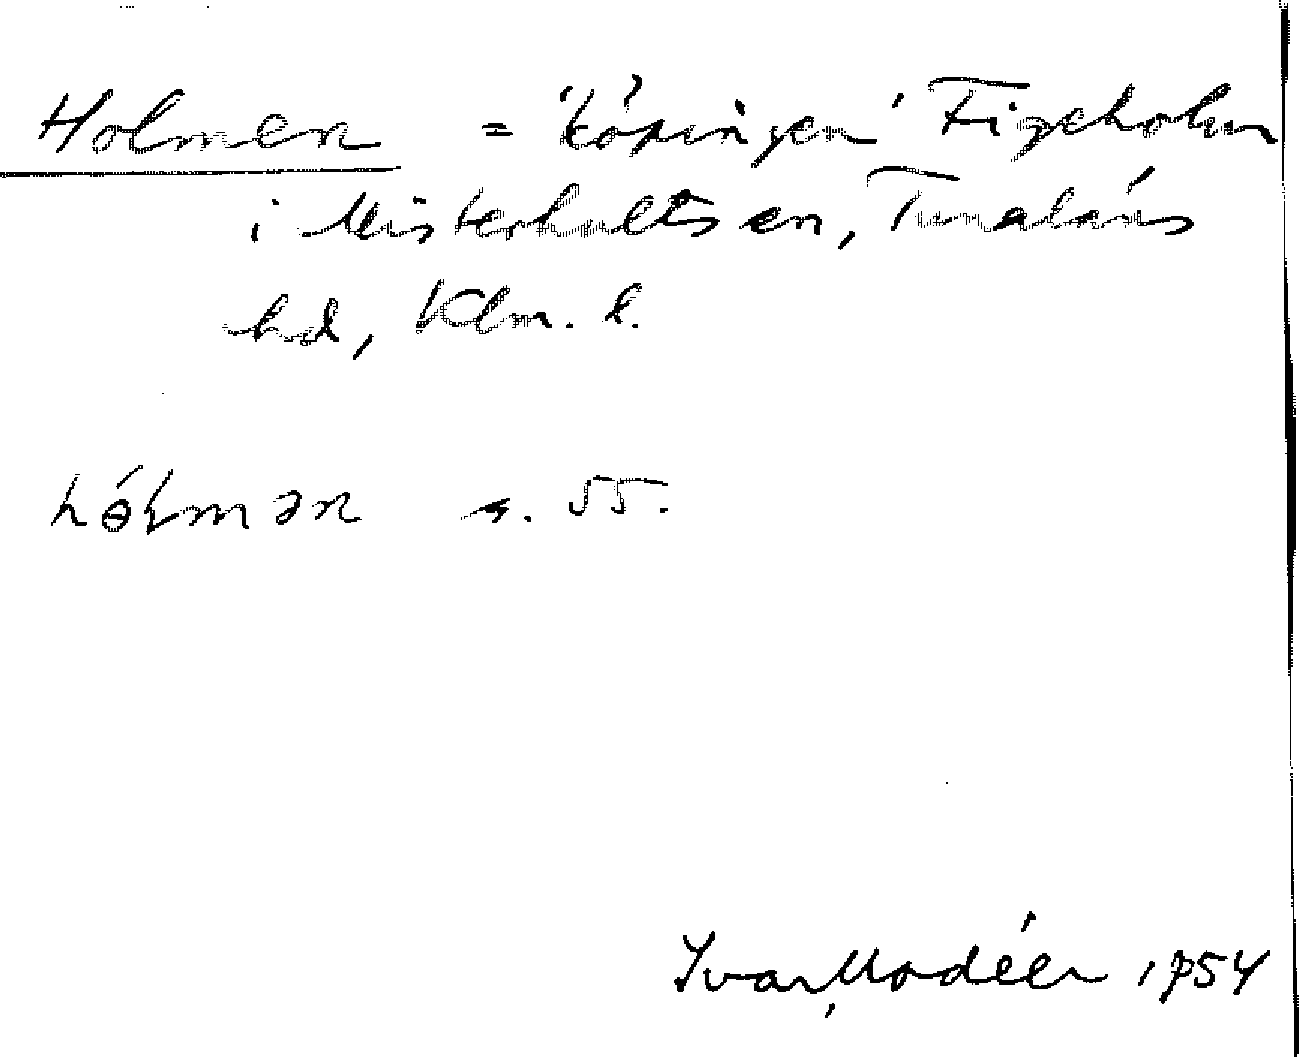 Holmen = 'köpingen' Figeholm
i Misterhults sn, Tunaläns
hd, Klm. l.
hɵ́lmən s. 55.
Ivar Modéer 1954